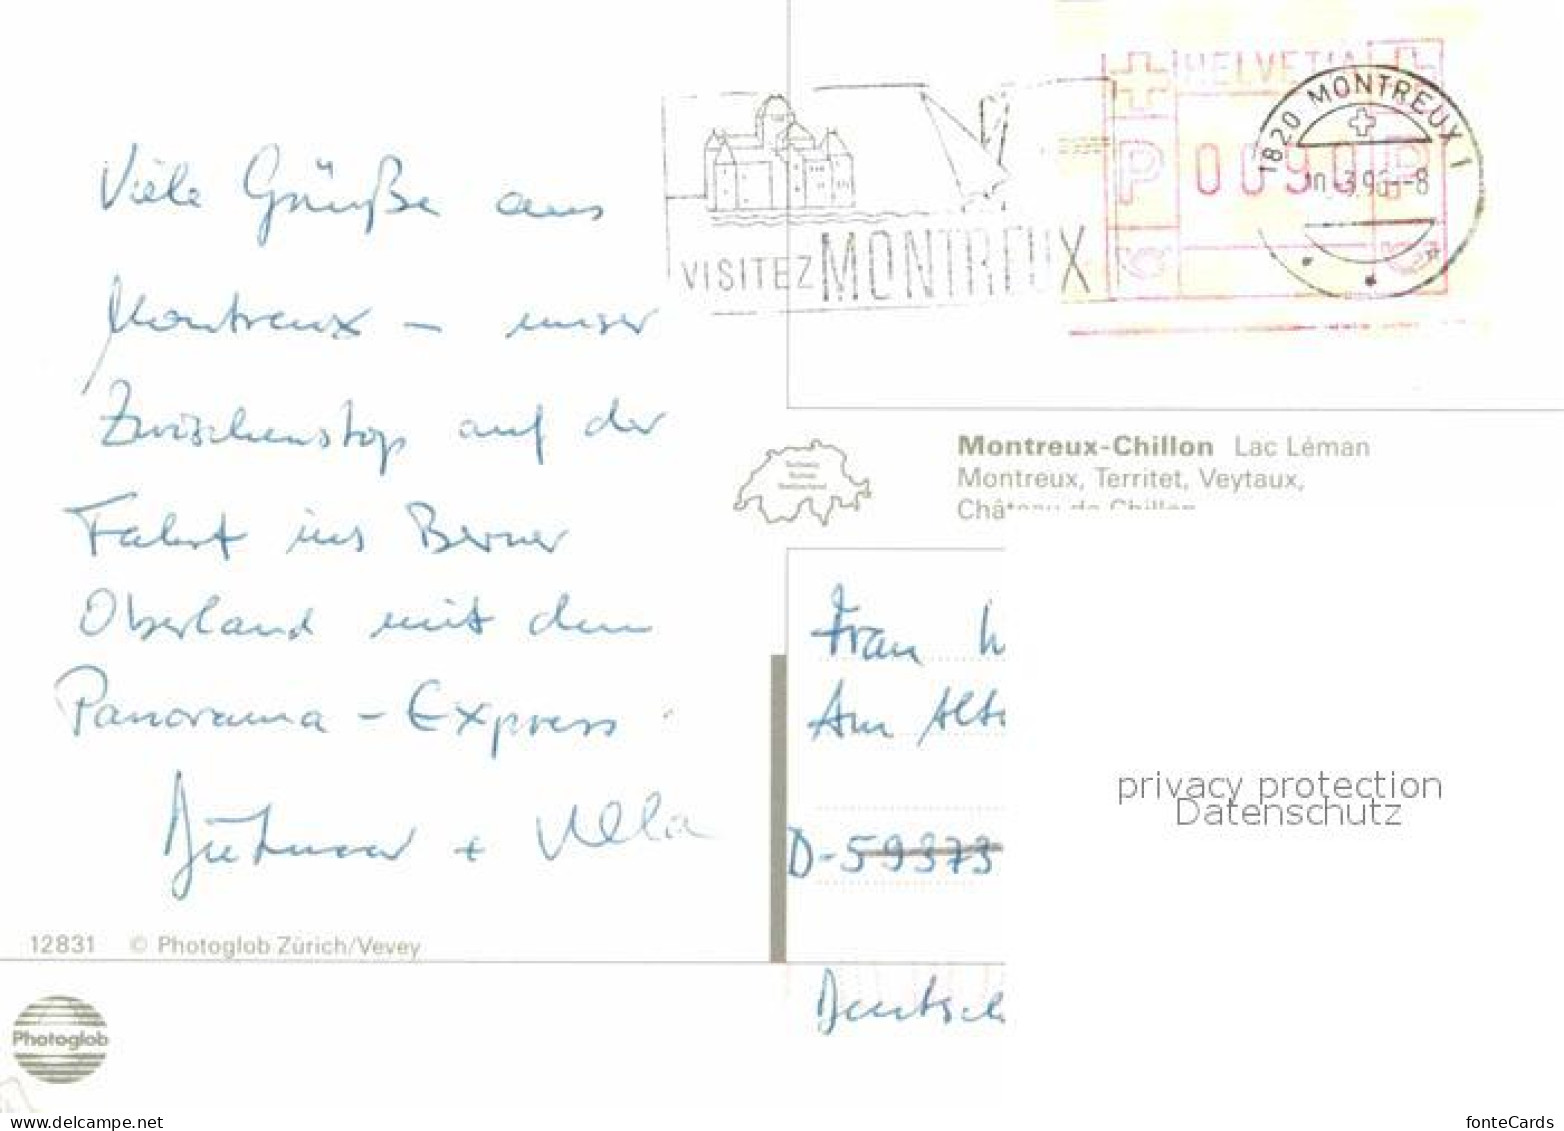 Viele Grüße aus
Montreux – unser
Zwischenstop auf der
Fahrt ins Berner
Oberland mit dem
Panorama - Express.
Dietmar + Ulla
12831 © Photoglob Zürich/Vevey
Photoglob
VISITEZ MONTREUX
HELVETIA
P 0090 P
1820 MONTREUX 1
Montreux-Chillon Lac Léman
Montreux, Territet, Veytaux,
Château de Chillon
Frau
Am Alte
D-59373
Deutsch
privacy protection
Datenschutz
www.delcampe.net
fonteCards